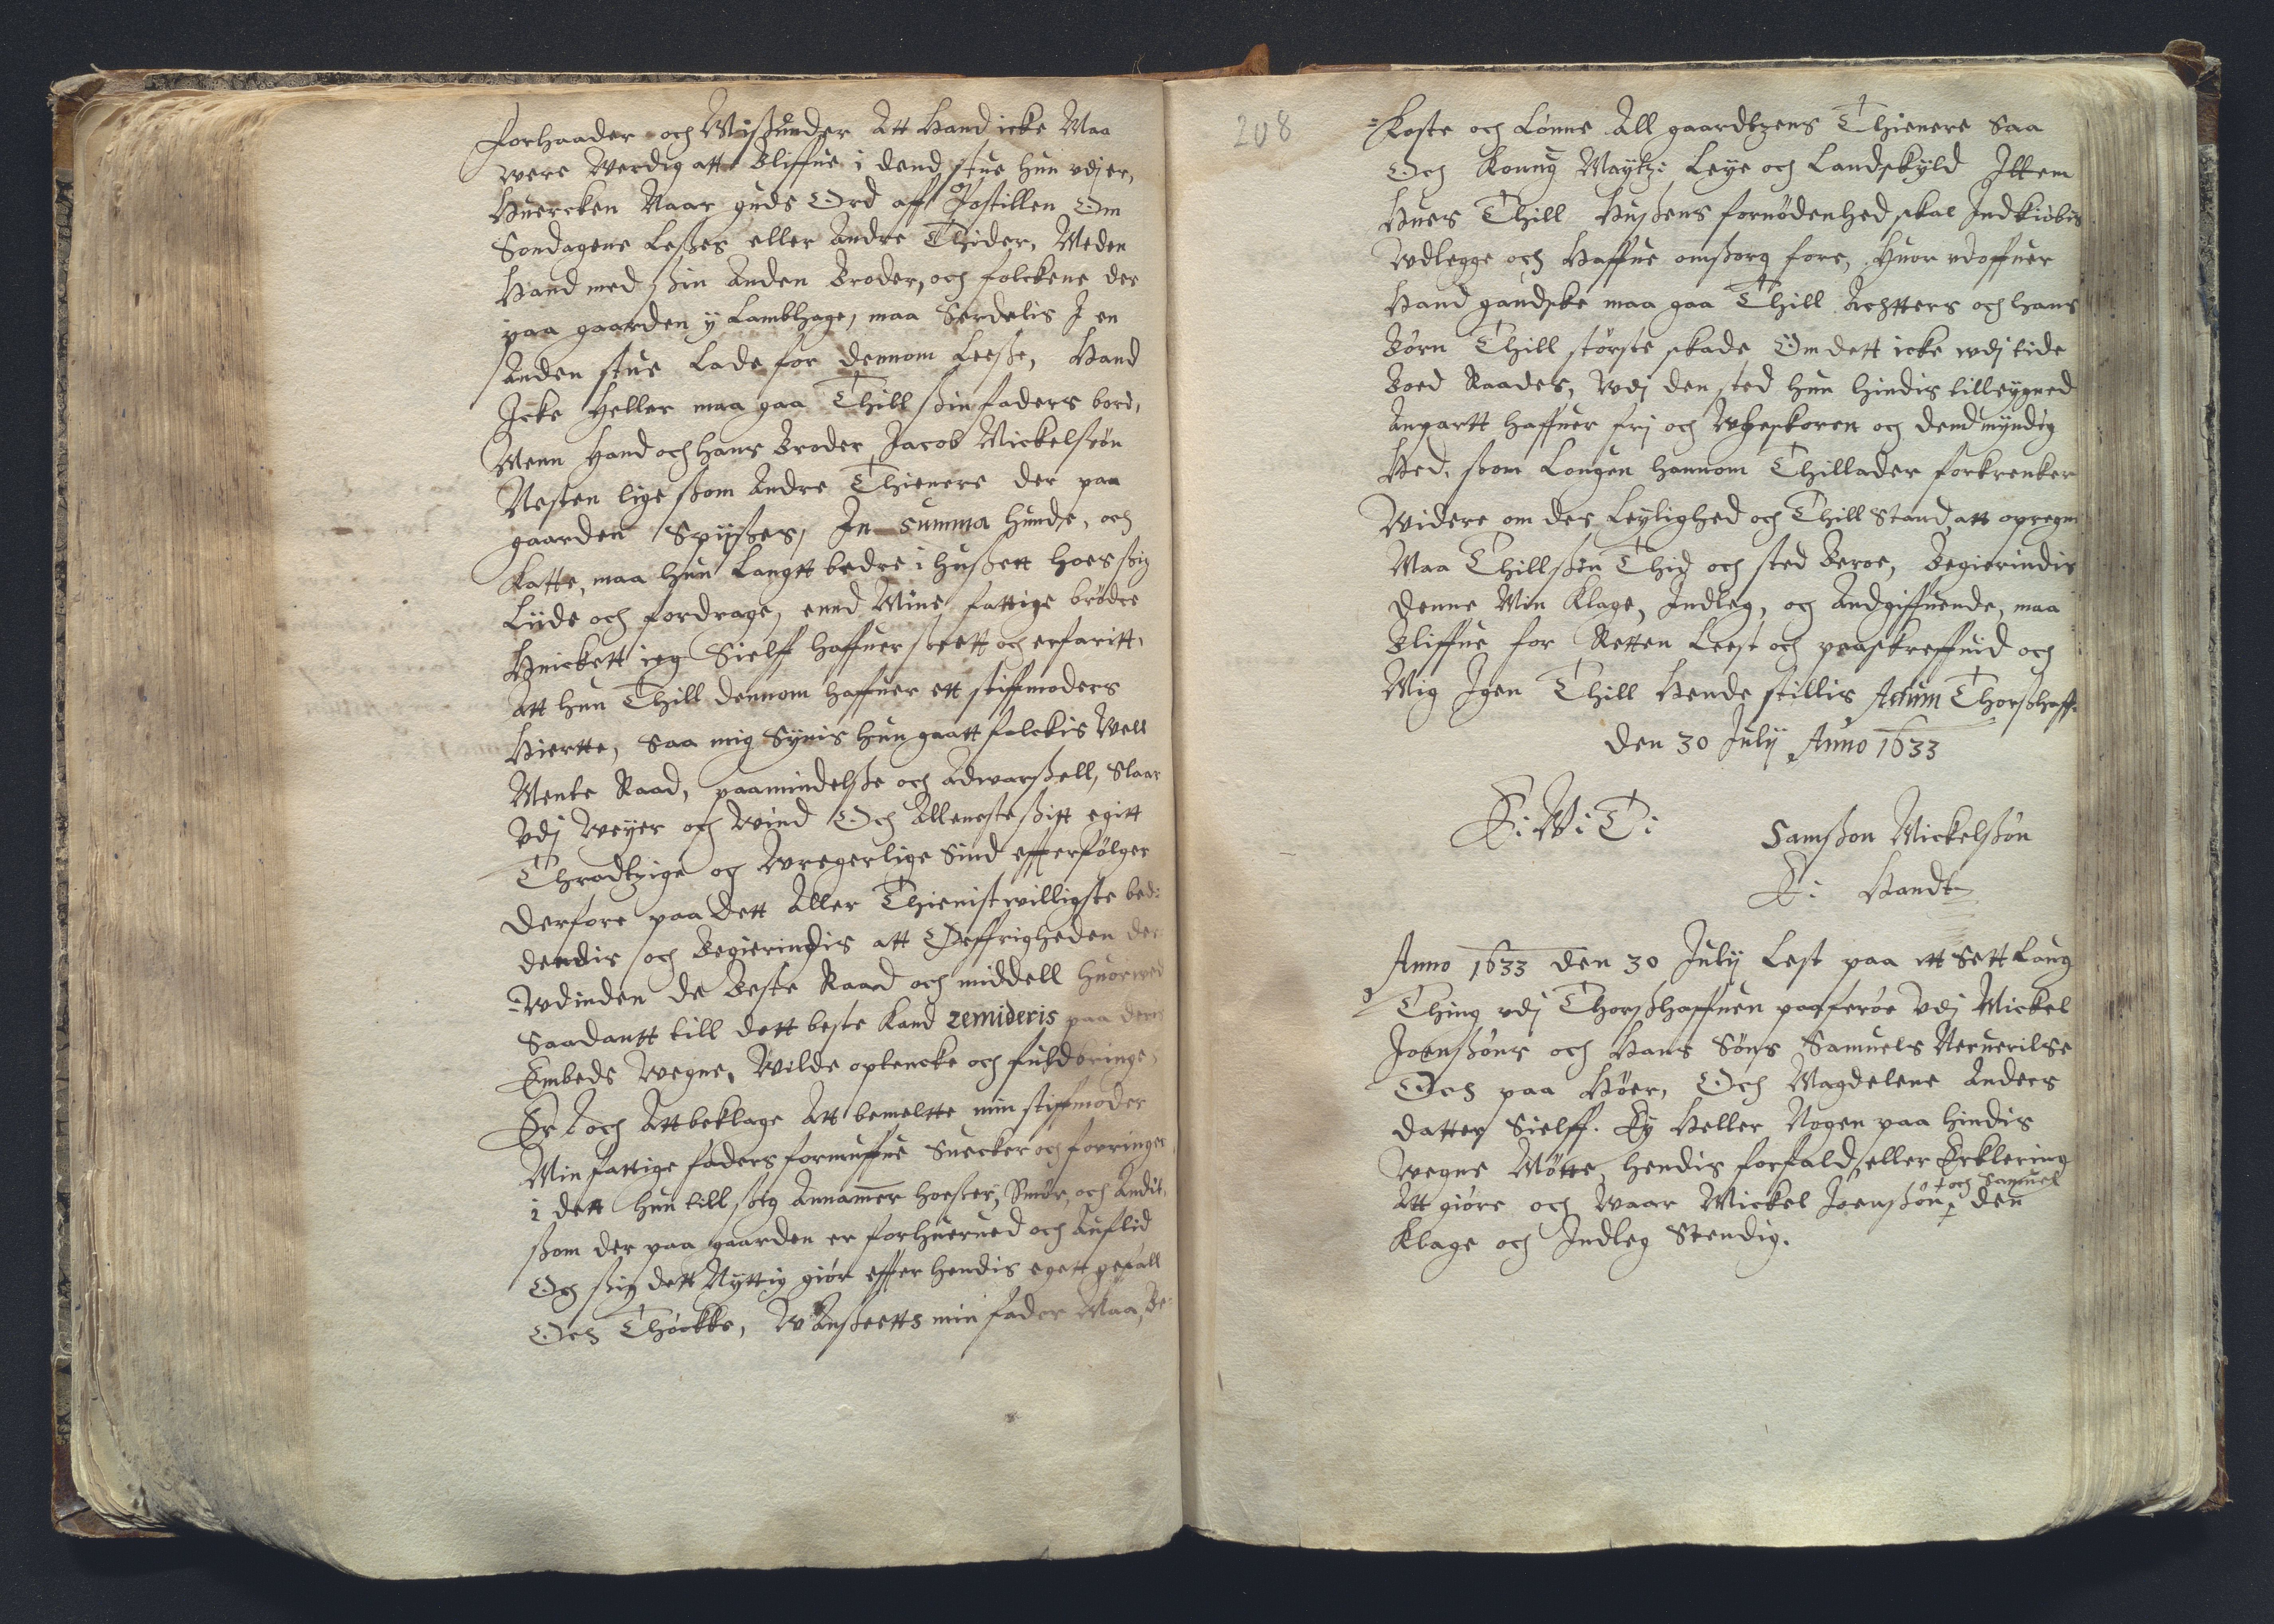 Forhaader och Missunder Att Hand icke Maa
were Verdig att Bliffue i dend stue hun vdj er,
Huercken Naar guds Ord aff Postillen Om
Sondagene Leßes eller Andre Thider, Meden
Hand med ßin Anden Broder, och folckene der
paa gaarden y Lambhage, maa Serdelis J en
Anden stue Lade for dennom Leeße, Hand
Jcke Heller maa gaa Thill ßin faders bord,
Menn Hand och hans Broder Jacob Mickelsøn
Nesten lige ßom Andre Thienere der paa
gaarden Spijßes, In summa Hunde, och
Katte, maa hun Langtt bedre i Hußett hoes ßig
Liide och fordrage, ennd Mine fattige brødre
Huickett ieg Sielff haffuer seett och erfaritt,
Att hun Thill dennom haffuer ett stiffmoders
Hiertte, Saa mig Synis hun gaatt folckis Vell
Mente Raad, paamindelße och Aduarßell, Slaar
Vdj Weyer och Wind Och Alleneste ßitt egitt
Thradtzige og Wregerlige Sind efterfølger
Derfore paa dett Aller Thienistwilligste bed:
dendis och Begierindis att Øffrigheden der
Wdinden de Beste Raad och middell huorwed
Saadantt till dett beste Kand remideris paa deris
Embeds Wegne, Wilde optencke och fuldbringe,
Er och Att beklage Att bemeltte min stiffmoder
Min fattige faders formuffue Suecker och forringer,
i dett hun till ßig Annammer hoeßer, Smør, och Andit,
ßom der paa gaarden er forhueruud och Auflid
Och ßig dett Nyttig giør efter hendis egett gefall
Och Thøckke, WAnßeetts min fader Maa, Be-
208
Koste och Lønne All gaardtzens Thienere Saa
Och Kong Maytz: Leye och Landskyld Jttem
Hues Thill Hußens fornødenhed skal Jndkiøbis
Wdlegge och Haffue omßorg fore, Huor vdoffuer
Hand gandske maa gaa Thill Achtters och hans
Børn Thill største skade Om dett icke wdj tide
Boed Raades, Wdj den sted hun hindis tilleygned
Anpartt haffuer frj och Wbeskoren och dend myndig
Hed, ßom Lougen hannom Thillader forkrencker
Widere om des Leylighed och Thill Stand att opregne
Maa Thill ßin Thid och sted Beroe, Begierindis
Denne Min Klage, Jndleg, och Andgiffuende, maa
Bliffue for Retten Leest och paaskreffuid och
Mig Jgen Thill Hende stillis Actum Thorßhaff.
Den 30 Julij Anno 1633
E: W: T:
Samßon Mickelßøn
E: Handt
Anno 1633 den 30 Julij Lest paa ett Sett Laug
Thing vdj Thorßhaffuen paa ferøe Vdj Mickel
Joenßøns och Hans Søns Samuels Neruerilse
Och paa Høer, Och Magdelene Anders
datter Sielff. Ey Heller Nogen paa hindis
Wegne Møtte, hendis forfald, eller Erklering
och Samuel
Att giøre och Waar Mickel Joenßøn den
Klage och Jndleg Stendig.